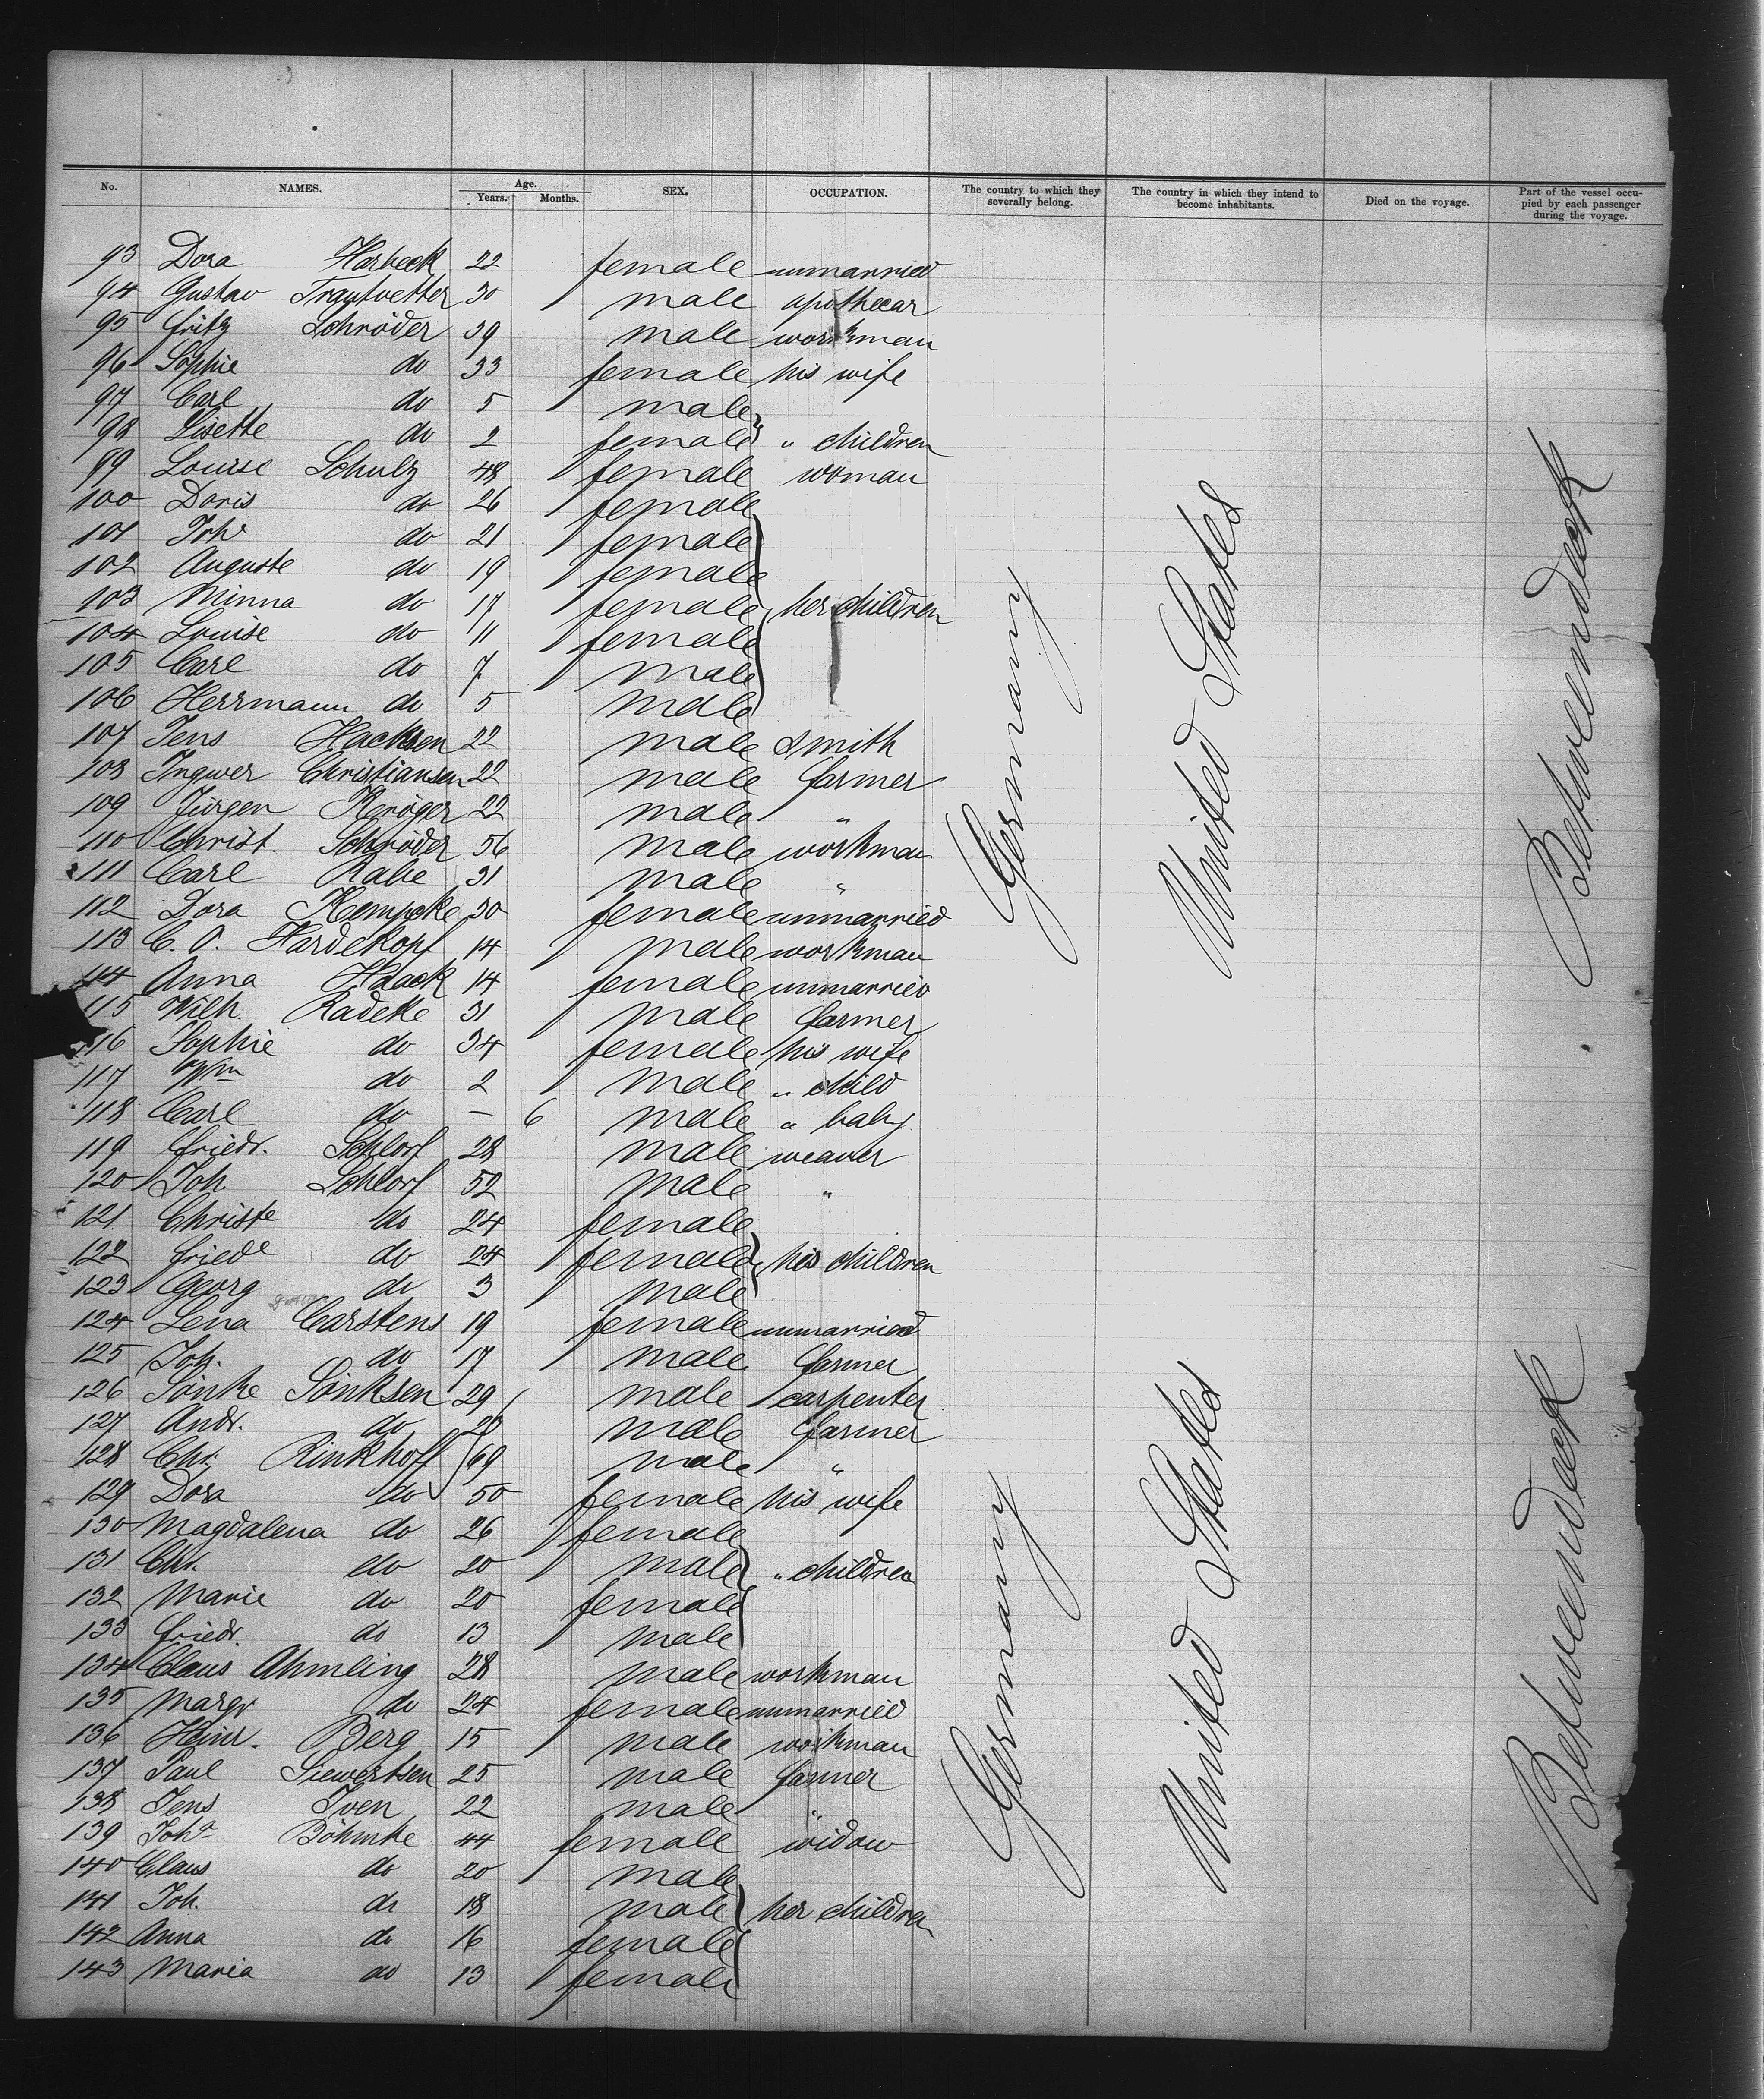 No. NAMES. Age. Years. Months. SEX. OCCUPATION. The country to which they severally belong. The country in which they intend to become inhabitants. Died on the voyage. Part of the vessel occupied by each passenger during the voyage.
93 Dora Harbeck 22 female unmarried
94 Gustav Trautvetter 30 male apothecar
95 Fritz Schröder 39 male workman
96 Sophie do 33 female his wife
97 Carl do 5 male
98 Lisette do 2 female " children
99 Louise Schulz 48 female woman
100 Doris do 26 female
101 Joh do 21 female
102 Auguste do 19 female
103 Minna do 17 female her children
104 Louise do 11 female
105 Carl do 7 male
106 Herrmann do 5 male
107 Jens Hacksen 22 male smith
108 Ingwer Christiansen 22 male farmer
109 Jürgen Kröger 22 male "
110 Christ. Schröder 56 male workman
111 Carl Rabe 31 male "
112 Dora Kempcke 30 female unmarried
113 C. O. Hardekopf 14 male workman
114 Anna Haack 14 female unmarried
115 Wilh. Radeke 31 male farmer
116 Sophie do 34 female his wife
117 Wm do 2 male " child
118 Carl do — 6 male " baby
119 Friedr. Schlorf 28 male weaver
120 Joh. Schlorf 52 male "
121 Christe do 24 female
122 Friede do 24 female his children
123 Georg do 3 male
124 Lena Carstens 19 female unmarried
125 Joh. do 17 male farmer
126 Sönke Sönksen 29 male carpenter
127 Andr. do 28 male farmer
128 Chr. Rinkhoff 69 male "
129 Dora do 50 female his wife
130 Magdalena do 26 female
131 Chr. do 20 male " children
132 Marie do 20 female
133 Friedr. do 13 male
134 Claus Ahmling 28 male workman
135 Margr do 24 female unmarried
136 Heinr. Berg 15 male workman
137 Paul Siewertsen 25 male farmer
138 Jens Iven 22 male "
139 Joha Böhmke 44 female widow
140 Claus do 20 male
141 Joh. do 18 male her children
142 Anna do 16 female
143 Maria do 13 female
Germany
United States
Betweendeck
Germany
United States
Betweendeck